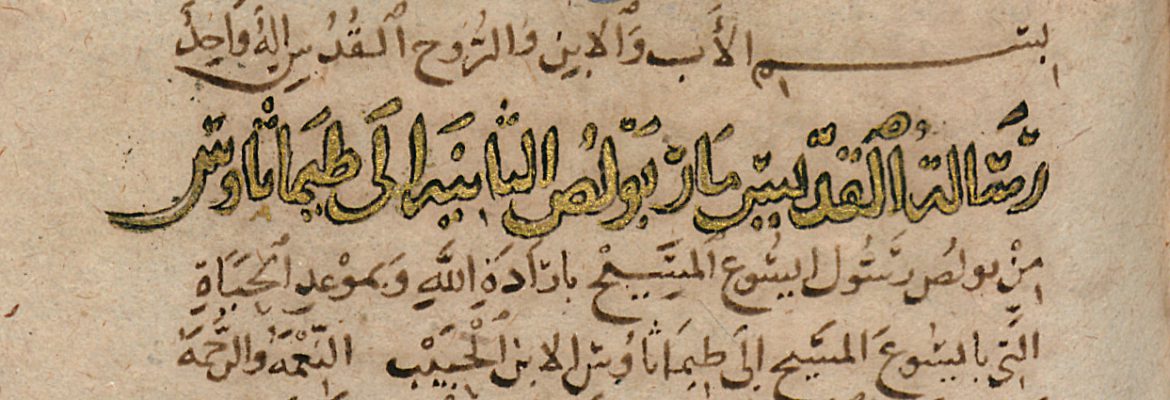 بسم الأب والابن والروح القدس إله واحد
رسالة القديس مار بولص الثانية إلى طيماثاوس
من بولص رسول ايسوع المسيح بارادة الله وبموعد الحياة
التي بايسوع المسيح إلى طيماثاوس الابن الحبيب النعمة والرحمة